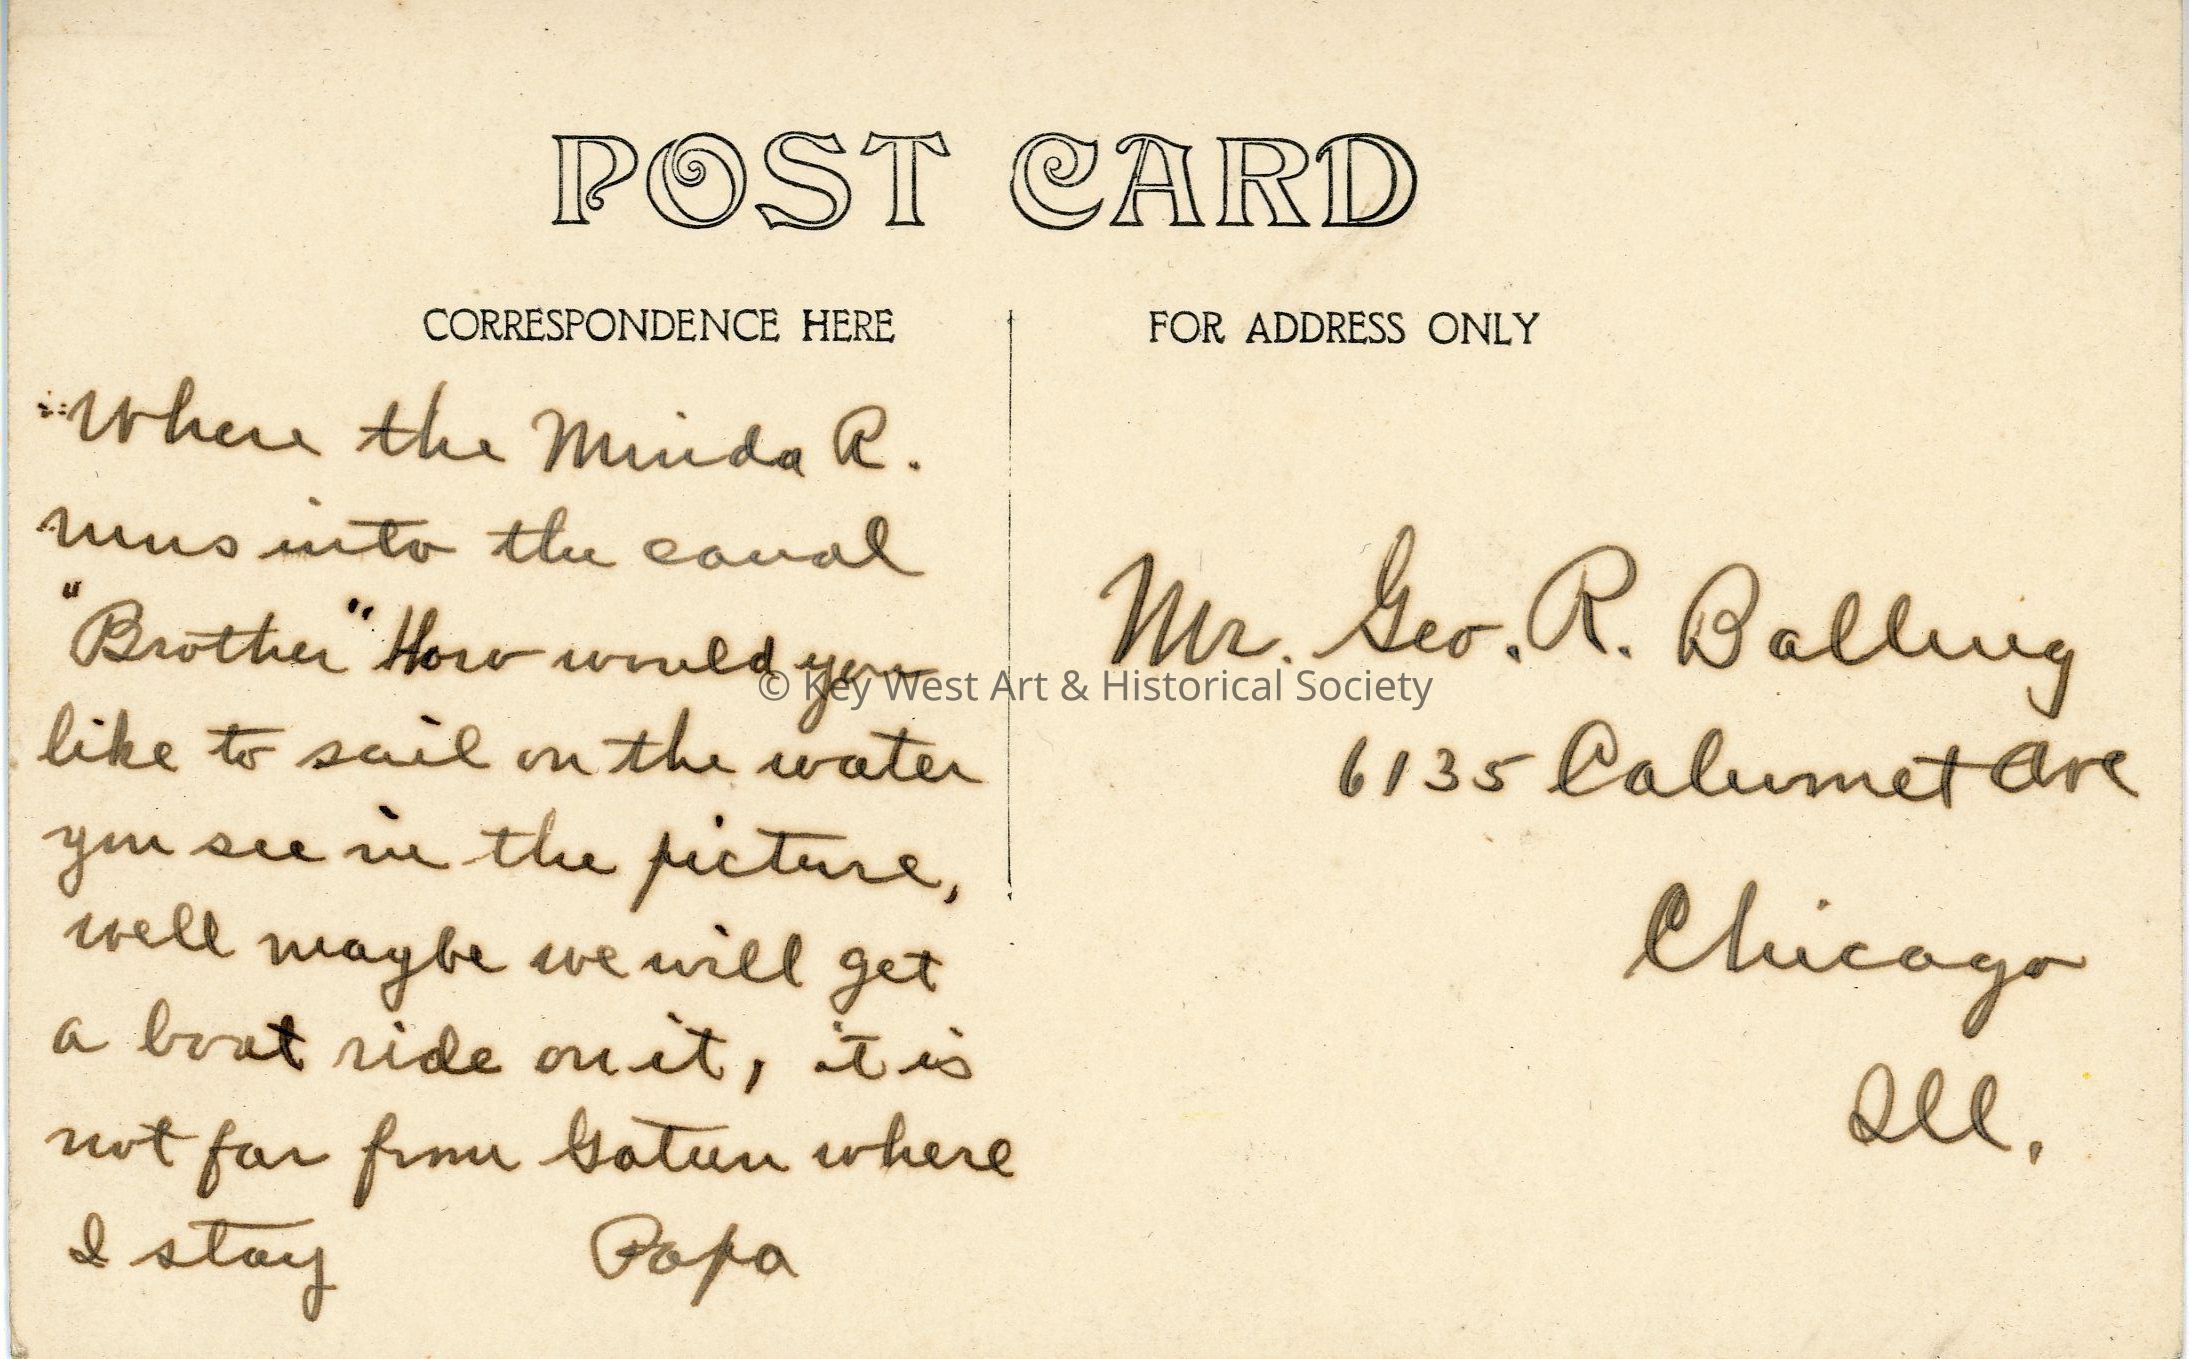 POST CARD
CORRESPONDENCE HERE
FOR ADDRESS ONLY
Where the Minda R.
runs into the canal
"Brother" How would you
like to sail on the water
you see in the picture,
well maybe we will get
a boat ride on it, it is
not far from Gatun where
I stay Papa
Mr. Geo. R. Balling
6135 Calumet Ave
Chicago
Ill.
© Key West Art & Historical Society